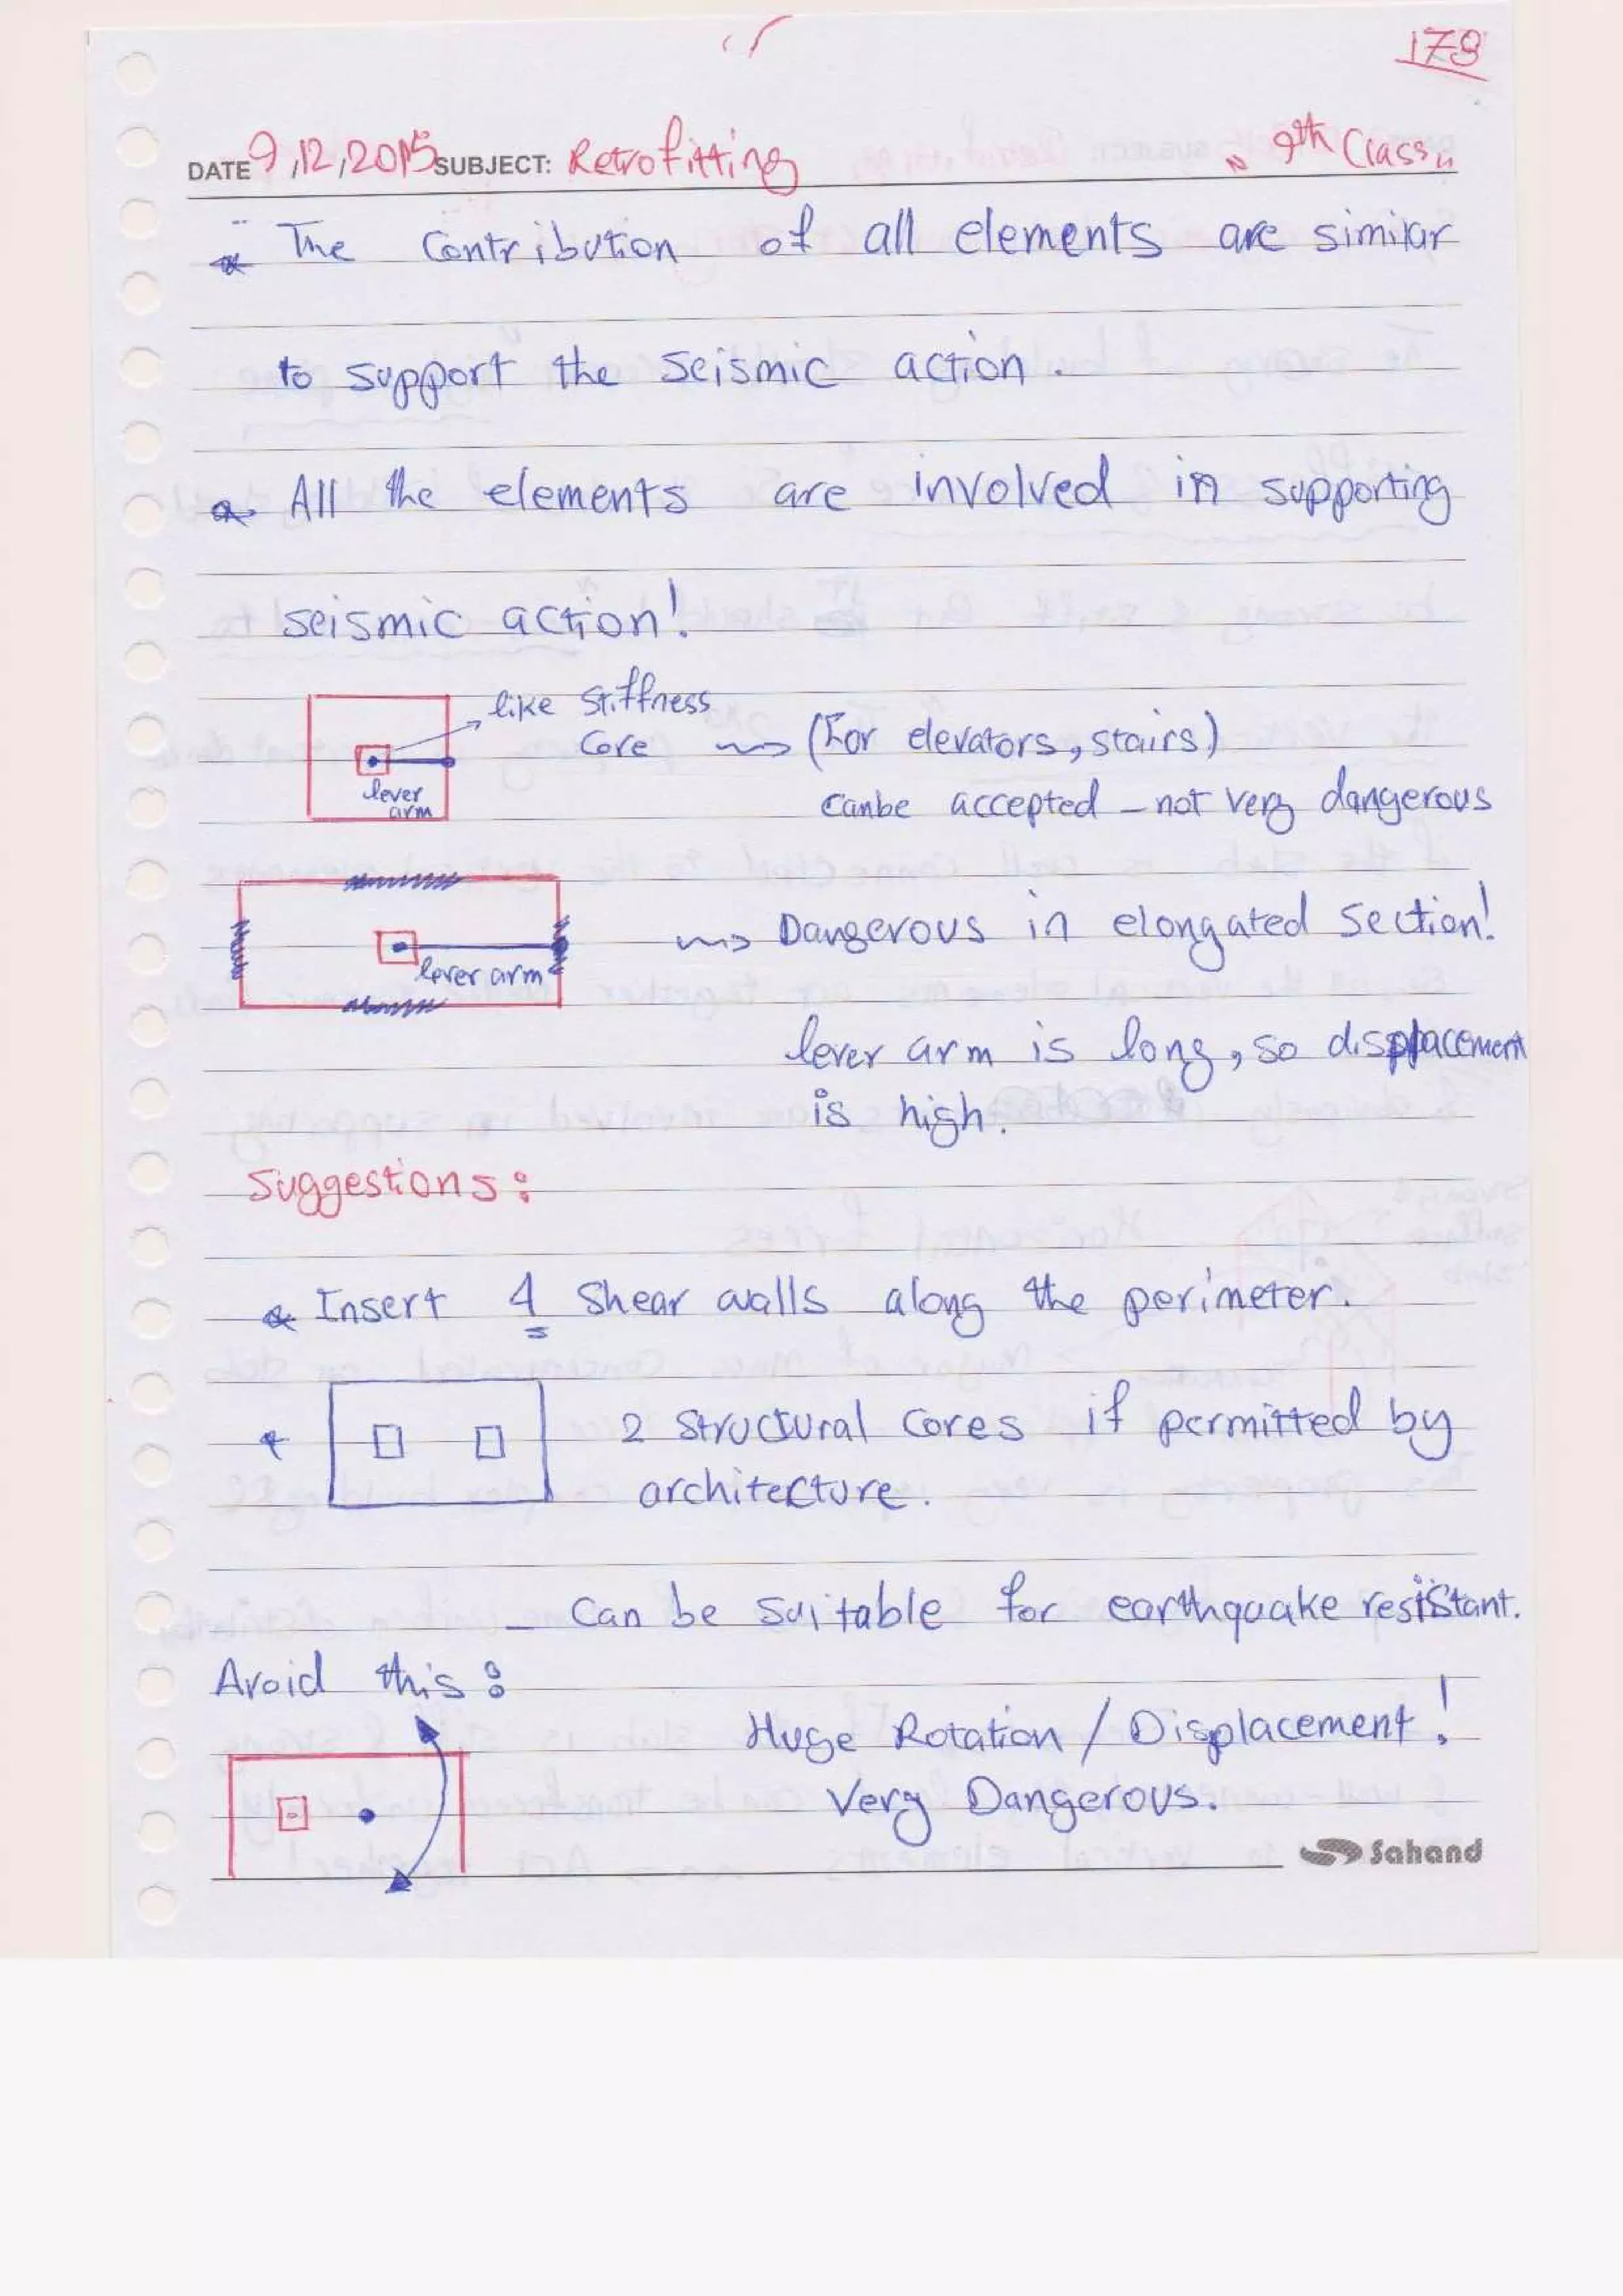 178
DATE 9,12,2015 SUBJECT: Retrofitting "9th Class"
* The Contribution of all elements are similar
to support the seismic action.
* All the elements are involved in supporting
seismic action!
like Stiffness
Core ⇝ (For elevators, stairs)
lever
arm
canbe accepted - not very dangerous
⇝ Dangerous in elongated section!
lever arm
lever arm is long, so displacement
is high.
Suggestions:
* Insert 4 Shear walls along the perimeter.
* 2 Structural Cores if permitted by
architecture.
- Can be suitable for earthquake resistant.
Avoid this:
Huge Rotation / Displacement!
Very Dangerous.
Sahand